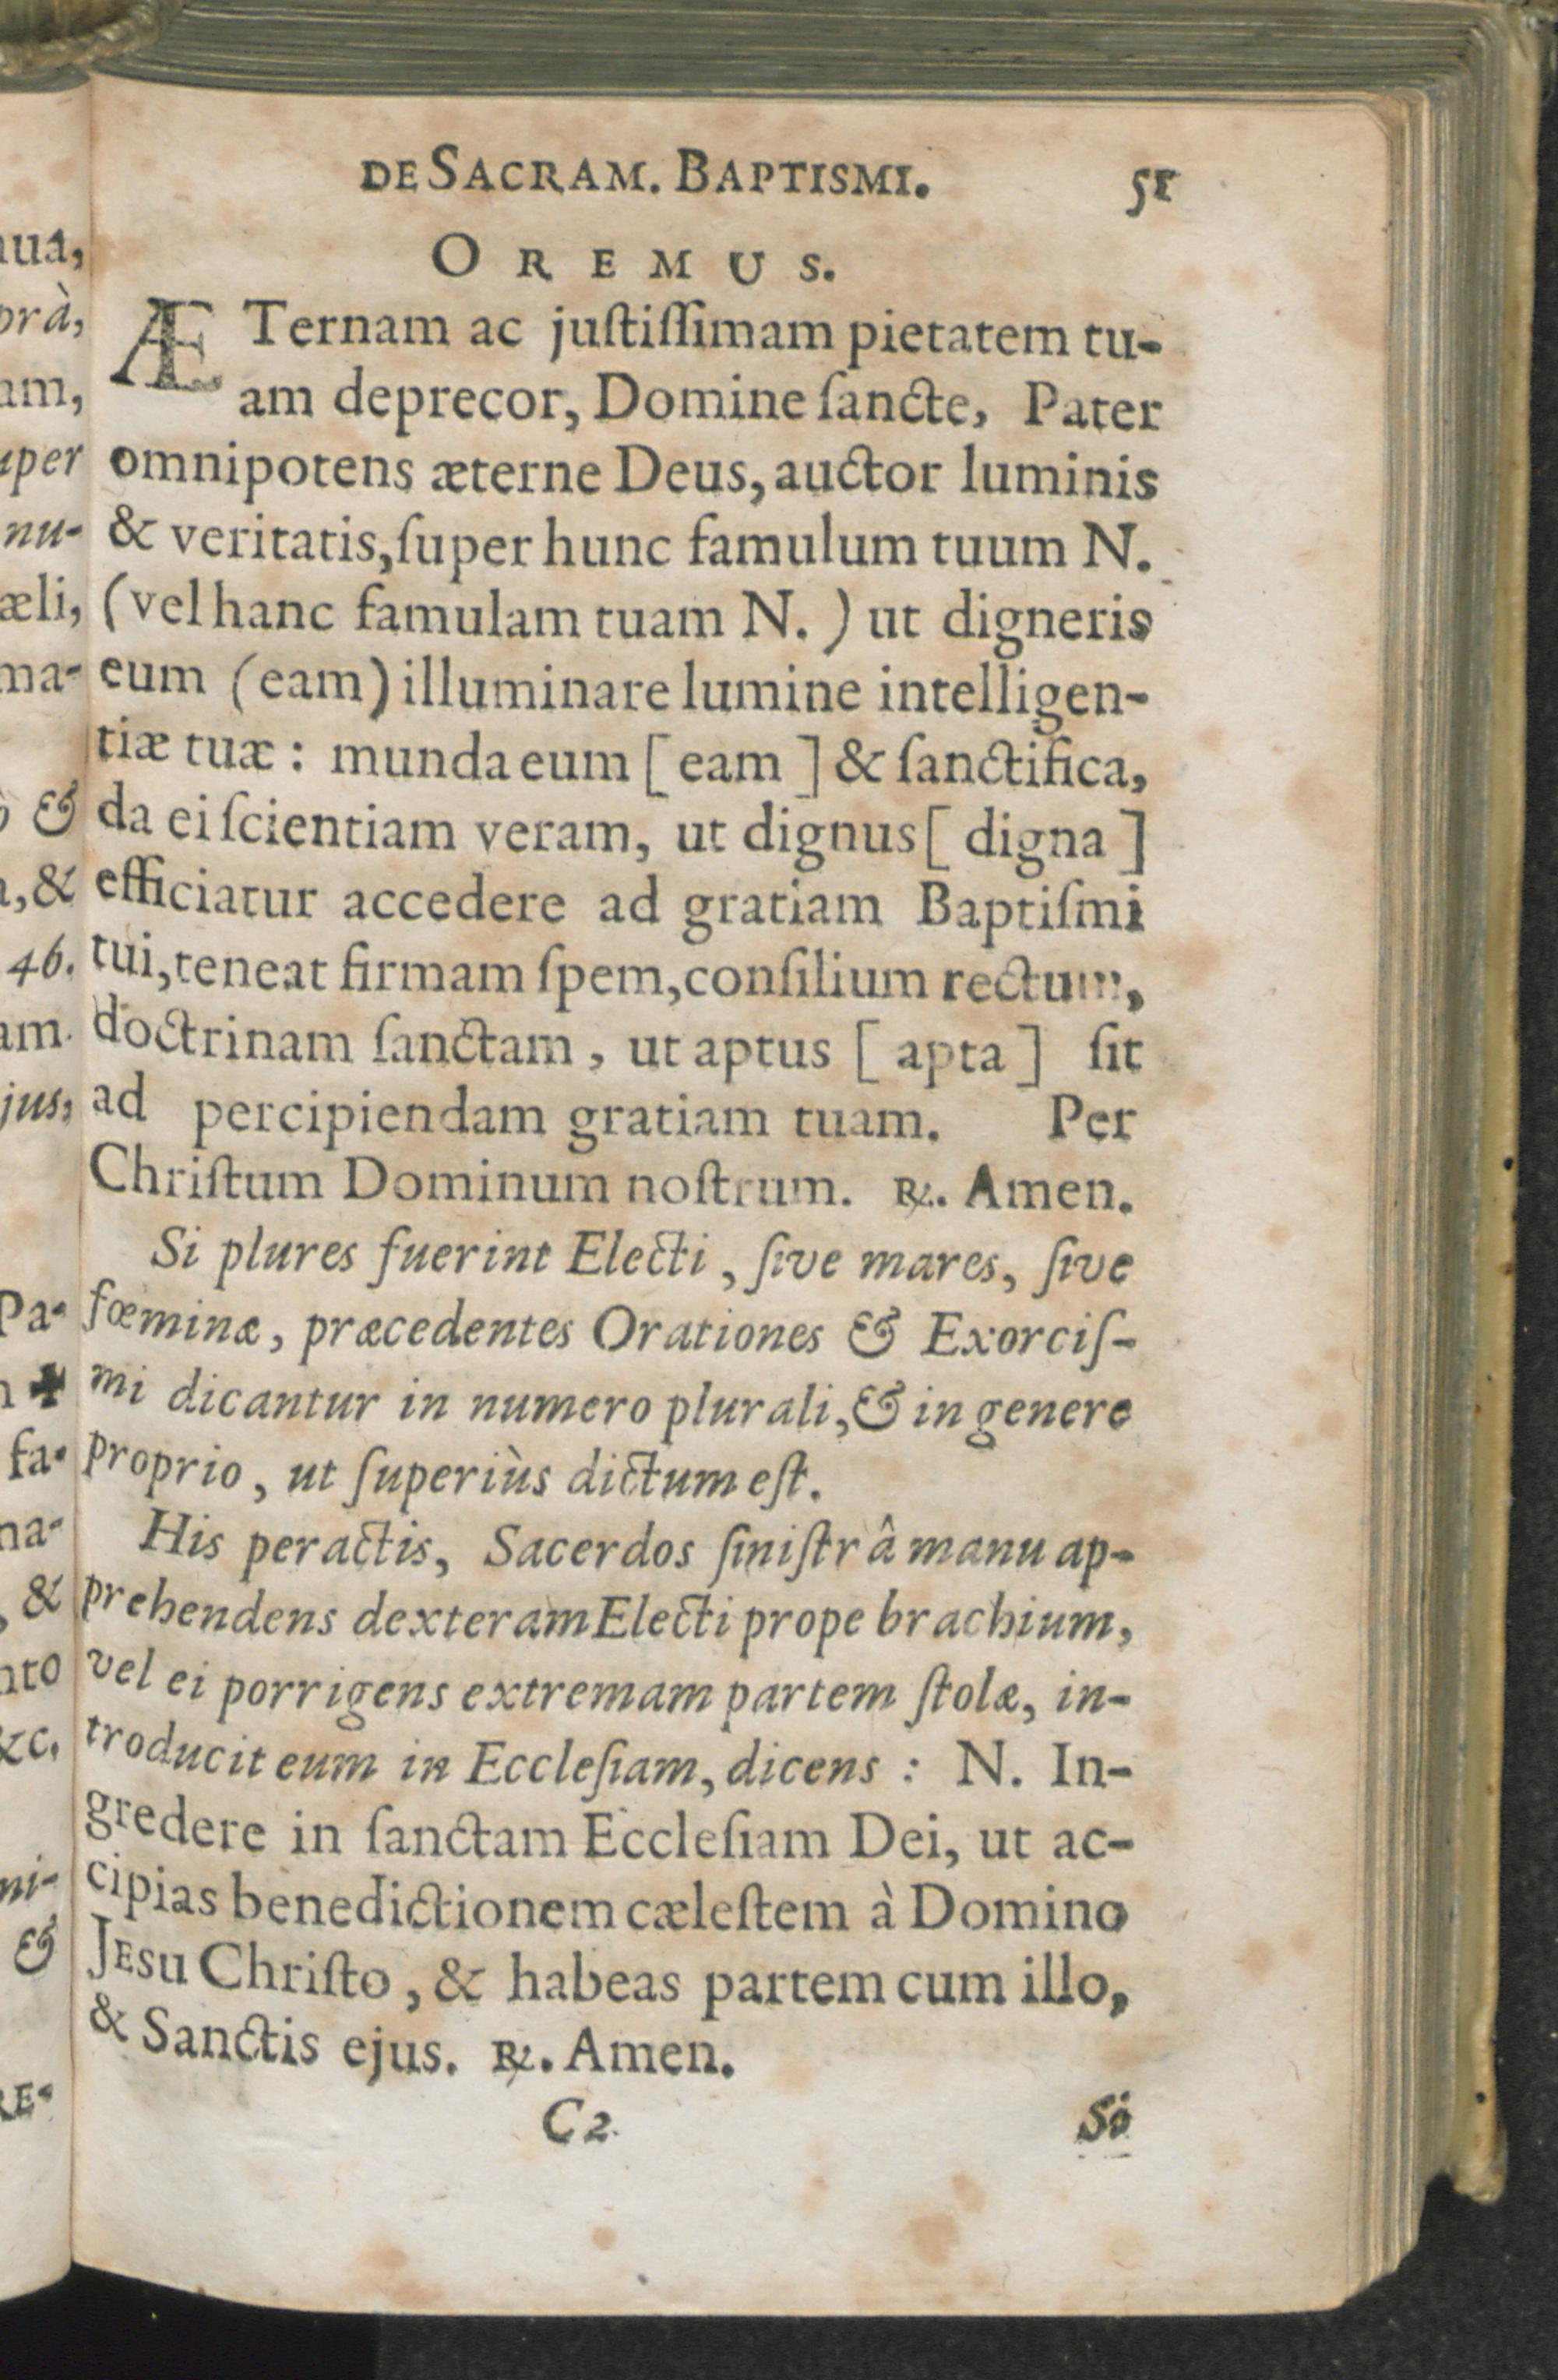 DE SACRAM. BAPTISMI. 51
OREMUS.
ÆTernam ac juſtiſſimam pietatem tu-
am deprecor, Domine ſancte, Pater
omnipotens æterne Deus, auctor luminis
& veritatis, ſuper hunc famulum tuum N.
(vel hanc famulam tuam N.) ut digneris
eum (eam) illuminare lumine intelligen-
tiæ tuæ: munda eum [eam] & ſanctifica,
da ei ſcientiam veram, ut dignus [digna]
efficiatur accedere ad gratiam Baptiſmi
tui, teneat firmam ſpem, conſilium rectum,
doctrinam ſanctam, ut aptus [apta] ſit
ad percipiendam gratiam tuam. Per
Chriſtum Dominum noſtrum. ℟. Amen.
Si plures fuerint Electi, ſive mares, ſive
fœminæ, præcedentes Orationes & Exorciſ-
mi dicantur in numero plurali, & in genere
proprio, ut ſuperiùs dictum eſt.
His peractis, Sacerdos ſiniſtrâ manu ap-
prehendens dexteram Electi prope brachium,
vel ei porrigens extremam partem ſtolæ, in-
troducit eum in Eccleſiam, dicens: N. In-
gredere in ſanctam Eccleſiam Dei, ut ac-
cipias benedictionem cæleſtem à Domino
JESU Chriſto, & habeas partem cum illo,
& Sanctis ejus. ℟. Amen.
C2 Si